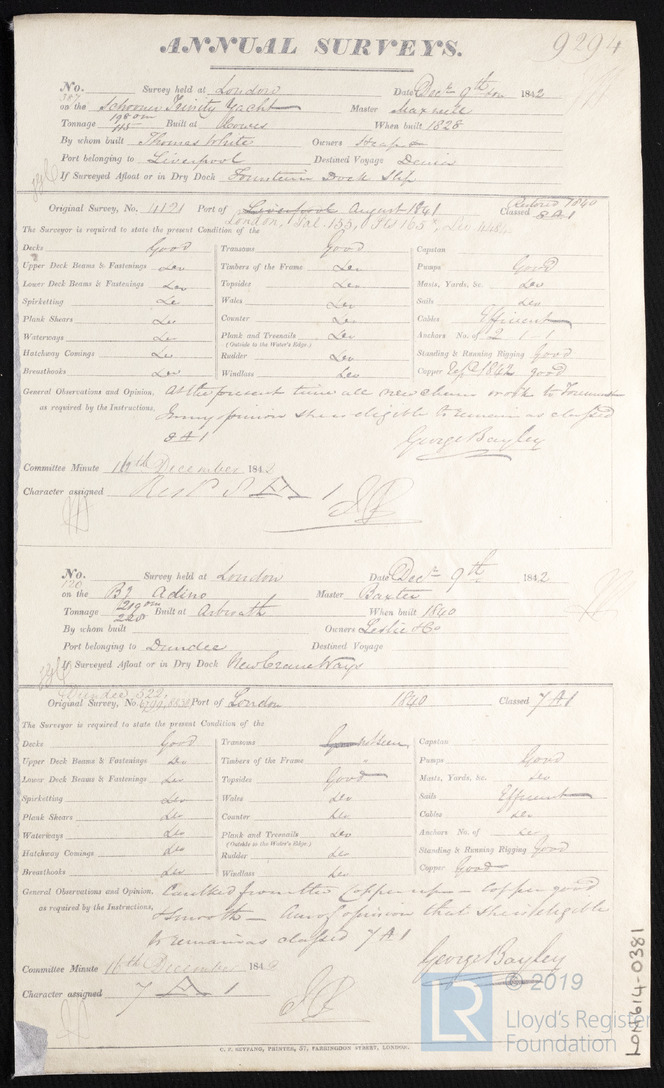 ANNUAL SURVEYS.
9294
No. 347 Survey held at London Date Decr 9th 1842
on the Schooner Trinity Yacht Master Maxwell
Tonnage Built at Cowes When built 1828
By whom built Thomas White Owners
Port belonging to Liverpool Destined Voyage
If Surveyed Afloat or in Dry Dock Fountain Dock Slip
Original Survey, No. 4121 Port of Liverpool August 1841 Classed Restored 1840
London,
The Surveyor is required to state the present Condition of the
Decks Good Transoms Good Capstan
Upper Deck Beams & Fastenings Do Timbers of the Frame Do Pumps Good
Lower Deck Beams & Fastenings Do Topsides Do Masts, Yards, &c. Do
Spirketting Do Wales Do Sails Do
Plank Shears Do Counter Do Cables Efficient
Waterways Do Plank and Treenails Do Anchors No. of 2 1 1
(Outside to the Water's Edge.)
Hatchway Comings Do Rudder Do Standing & Running Rigging Good
Breasthooks Do Windlass Do Copper Sept 1842 good
General Observations and Opinion, At the present time all new chain
as required by the Instructions, In my opinion she is eligible to remain as classed
A 1
George Bayley
Committee Minute 16th December 1842
Character assigned A 1
No. 120 Survey held at London Date Decr 9th 1842
on the Bg Adino Master Baxter
Tonnage 219 om 228 Built at Arbroath When built 1840
By whom built Owners Leslie & Co
Port belonging to Dundee Destined Voyage
If Surveyed Afloat or in Dry Dock New Crane Ways
Dundee 522,
Original Survey, No. Port of London 1840 Classed 7 A 1
The Surveyor is required to state the present Condition of the
Decks Good Transoms not seen Capstan
Upper Deck Beams & Fastenings Do Timbers of the Frame " Pumps Good
Lower Deck Beams & Fastenings Do Topsides Good Masts, Yards, &c. Do
Spirketting Do Wales Do Sails Efficient
Plank Shears Do Counter Do Cables Do
Waterways Do Plank and Treenails Do Anchors No. of Do
(Outside to the Water's Edge.)
Hatchway Comings Do Rudder Do Standing & Running Rigging Good
Breasthooks Do Windlass Do Copper Good
General Observations and Opinion, Caulked from the Copper up - Copper good
as required by the Instructions, & smooth - Am of opinion that she is eligible
to remain as classed 7 A 1
George Bayley
Committee Minute 16th December 184
Character assigned 7 A 1
C. F. SEYFANG, PRINTER, 57, FARRINGDON STREET, LONDON.
LR © 2019
Lloyd's Register
Foundation
LON614-0381